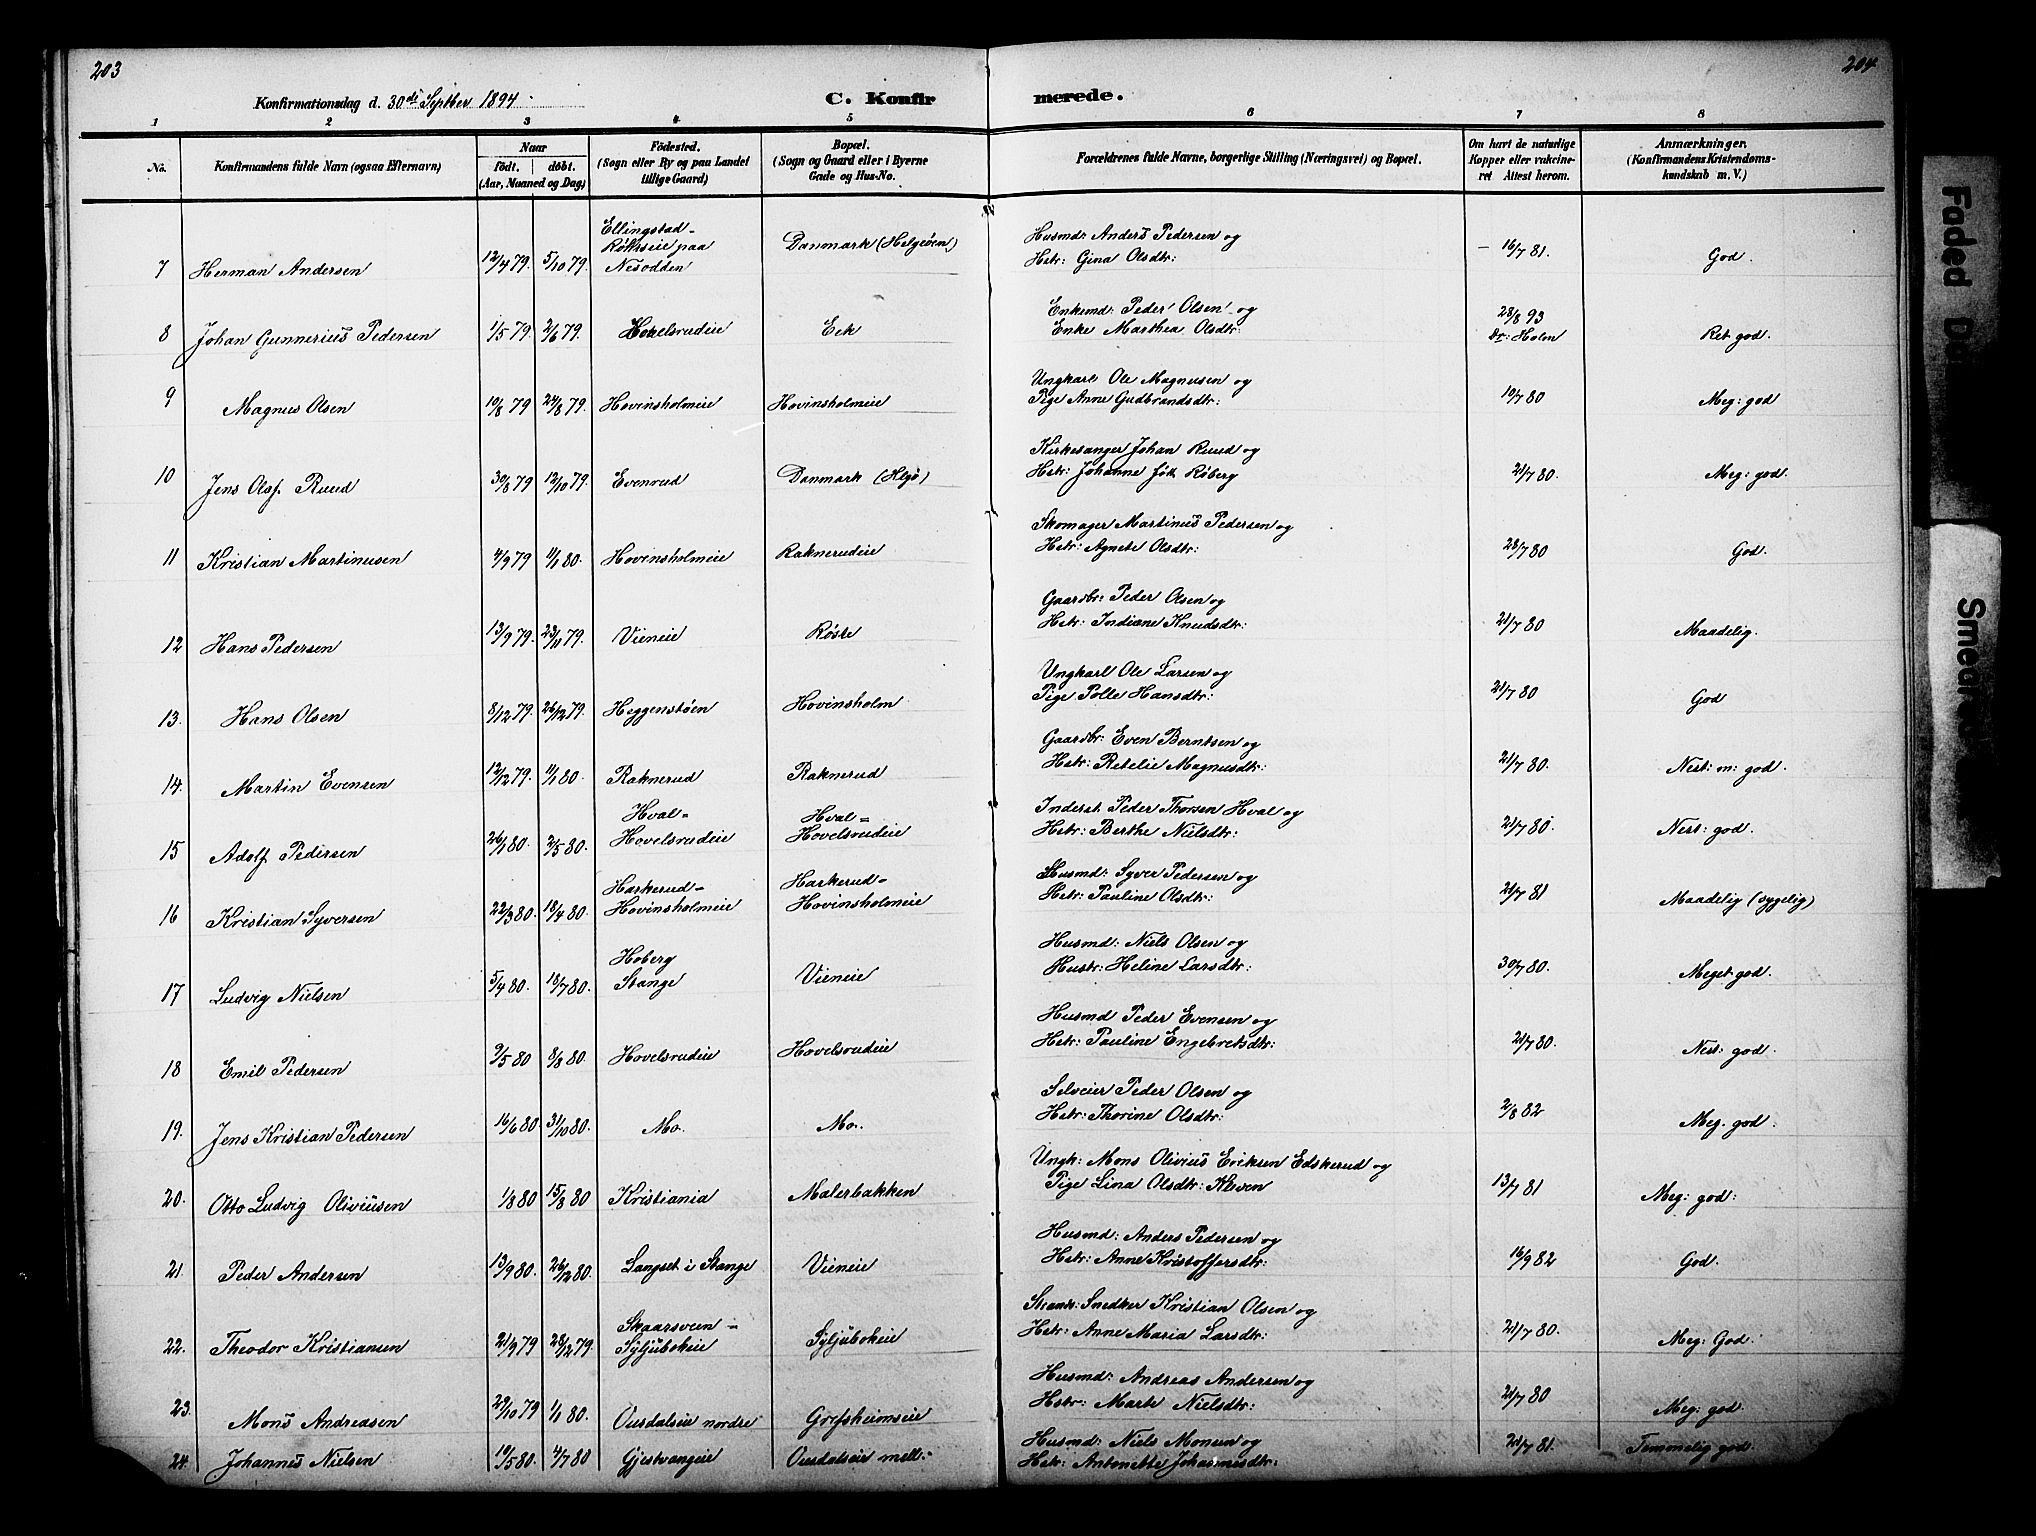 203
204
Konfirmationsdag d. 30de Septber 1894
C. Konfirmerede.
1 2 3 4 5 6 7 8
No. Konfirmandens fulde Navn (ogsaa Efternavn) Naar født. døbt. (Aar, Maaned og Dag) Fødested. (Sogn eller By og paa Landet tillige Gaard) Bopæl. (Sogn og Gaard eller i Byerne Gade og Hus-No. Forældrenes fulde Navne, borgerlige Stilling (Næringsvei) og Bopæl. Om havt de naturlige Kopper eller vakcineret Attest herom. Anmærkninger. (Konfirmandens Kristendomskundskab m. V.)
7 Herman Andersen 12/4 79. 5/10 79. Ellingstad-Røkseie paa Nesodden Danmark (Helgeøen) Husmd: Anders Pedersen og Hstr: Gina Olsdtr: – 16/7 81. God.
8 Johan Gunnerius Pedersen 1/5 79. 2/6 79. Hovelsrudeie Eek Enkemd: Peder Olsen og Enke Marthea Olsdtr: 28/8 93 Dr: Holm Ret god.
9 Magnus Olsen 10/8 79 24/8 79. Hovinsholmeie Hovinsholmeie Ungkarl Ole Magnusen og Pige Anne Gudbrandsdtr: 10/7 80 Meg: god
10 Jens Olaf Ruud 30/8 79 12/10 79. Evenrud Danmark (Hlgø) Kirkesanger Johan Ruud og Hstr: Johanne født Røberg 21/7 80. Meg: god.
11 Kristian Martinusen 4/9 79 1/1 80. Hovinsholmeie Raknerudeie Skomager Martinus Pedersen og Hstr: Agnete Olsdtr: 28/7 80 God.
12 Hans Pedersen 13/9 79. 23/11 79. Vieneie Røste Gaardbr: Peder Olsen og Hstr: Indiane Knudsdtr: 21/7 80 Maadelig.
13. Hans Olsen 8/12 79. 26/12 79. Heggenstøen Hovinsholm Ungkarl Ole Larsen og Pige Polle Hansdtr: 21/7 80 God
14. Martin Evensen 12/12 79. 1/1 80. Raknerud Raknerud Gaardbr: Even Berntsen og Hstr: Retelie Magnusdtr: 21/7 80. Nest: m: god.
15 Adolf Pedersen 26/1 80. 2/5 80. Hval-Hovelsrudeie Hval=Hovelsrudeie Inderst. Peder Thorsen Hval og Hstr: Berthe Nielsdtr: 21/7 80. Nest: god.
16 Kristian Syversen 22/3 80. 18/4 80. Harkerud-Hovinsholmeie Harkerud-Hovinsholmeie Husmd: Syver Pedersen og Hstr: Pauline Olsdtr: 21/7 81 Maadelig (sygelig)
17 Ludvig Nielsen 5/4 80. 18/7 80. Hoberg Stange Vieneie Husmd: Niels Olsen og Hustr: Heline Larsdtr: 30/7 80. Meget god.
18 Emil Pedersen 9/5 80 8/8 80. Hovelsrudeie Hovelsrudeie Husmd Peder Evensen og Hstr: Pauline Engebretsdtr: 21/7 80. Nest: god.
19. Jens Kristian Pedersen 16/6 80 31/10 80. Mo. Mo. Selveier Peder Olsen og Hstr: Thorine Olsdtr: 2/8 82 Meg. god.
20. Otto Ludvig Oliviusen 1/8 80 15/8 80 Kristiania Malerbakken Ungk: Mons Olivius Eriksen Edskerud og Pige Lina Olsdtr: Kleven 13/7 81 Meg: god:
21. Peder Andersen 13/9 80. 26/12 80. Langset i Stange Vieneie Husmd: Anders Pedersen og Hstr: Anne Kristoffersdtr: 16/9 82 God.
22. Theodor Kristiansen 21/9 79 28/12 79. Skaarsveen-Syljubokeie Syljubokeie Snedker Kristian Olsen og Hstr: Anne Maria Larsdtr: 21/7 80. Meg: God.
23. Mons Andreasen 22/10 79 1/1 80. Ousdalseie nordre Grefsheimseie Husmd: Andreas Andersen og Hstr: Marte Nielsdtr: 21/7 80 Meg: god.
24. Johannes Nielsen 10/5 80. 4/7 80 Gjestvangeie Ousdalseie mell: Husmd: Niels Monsen og Hstr: Antonette Johannesdtr: 21/7 81. Temmelig god.
Faded D
Smeared